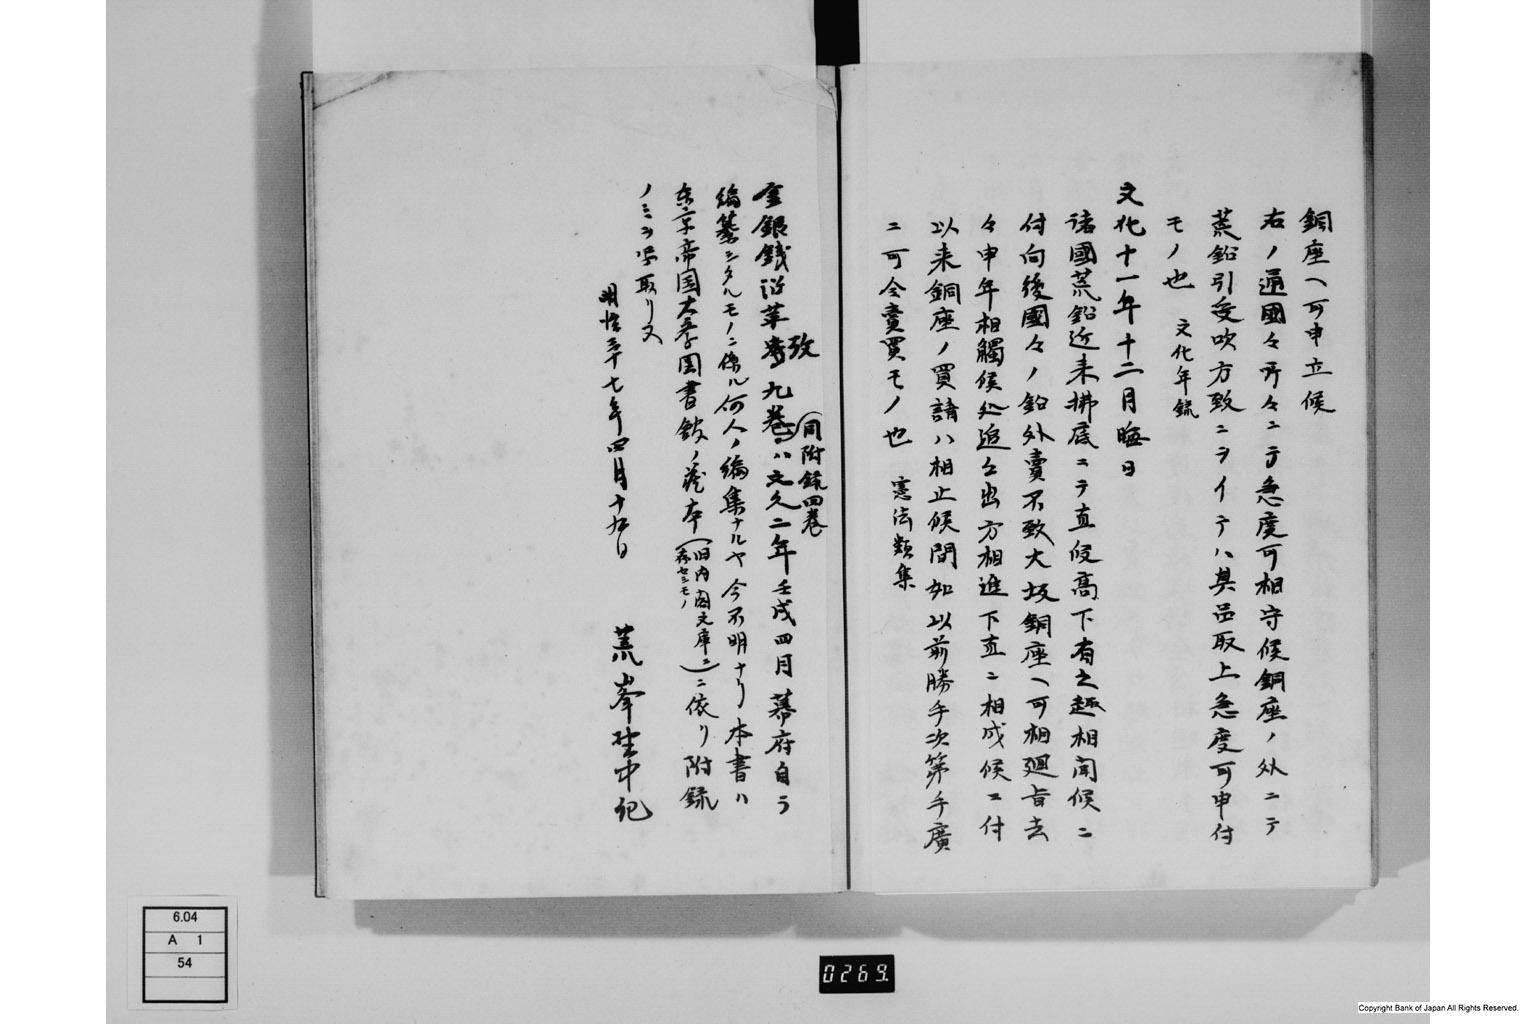 銅座ヘ可申立候
右ノ通國々所々ニテ急度可相守候銅座ノ外ニテ
荒鉛引受吹方致ニヲイテハ其品取上急度可申付
モノ也 文化年録
文化十一年十二月晦日
諸國荒鉛近来拂底ニテ直段高下有之趣相聞候ニ
付向後國々ノ鉛外賣不致大坂銅座ヘ可相廻旨去
々申年相觸候処追々出方相進下直ニ相成候ニ付
以来銅座ノ買請ハ相止候間如以前勝手次第手廣
ニ可令賣買モノ也 憲法類集
金銀銭沿革攷九巻(同附録四巻)ハ文久二年壬戌四月幕府自ラ
編纂シタルモノニ係ル何人ノ編集ナルヤ今不明ナリ本書ハ
東京帝国大学図書館ノ蔵本(旧内閣文庫ニ存セシモノ)ニ依リ附録
ノミヲ写取リヌ
明治三十七年四月十九日
荒峯 中記
6.04
A 1
54
0269
Copyright Bank of Japan All Rights Reserved.